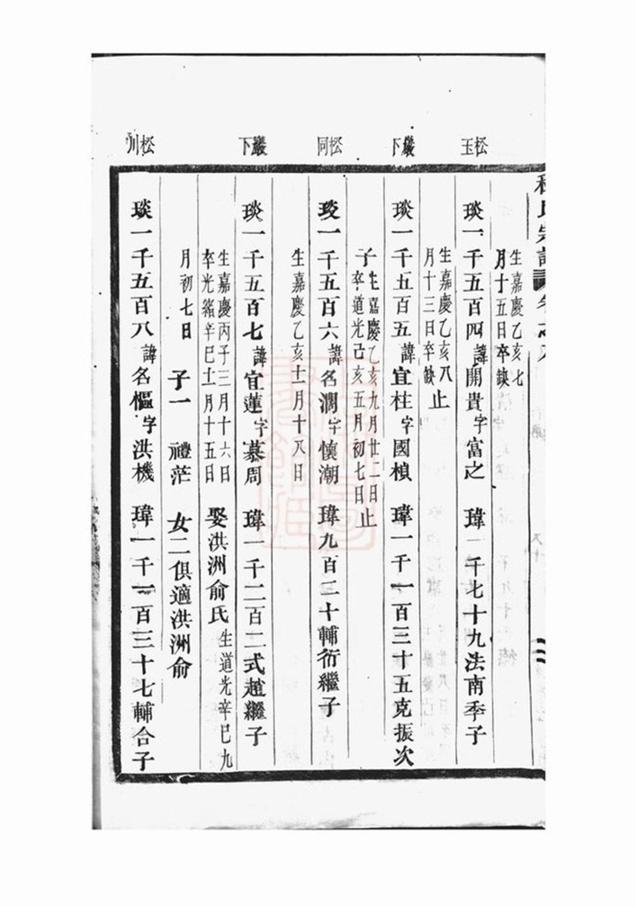 松玉
琰一千五百四諱開貴字富之 瑋一千七十九法南季子
生嘉慶乙亥七
月十五日卒缺
巖下
琰一千五百五諱宜柱字國楨 瑋一千一百三十五克振次
生嘉慶乙亥八
月十三日卒缺 止
子生嘉慶乙亥九月廿一日
卒道光己亥五月初七日 止
松同
琰一千五百六諱名潤字懷潮 瑋九百三十輔衍繼子
生嘉慶乙亥十一月十八日
巖下
琰一千五百七諱宜蓮字慕周 瑋一千二百二式趙繼子
生嘉慶丙子三月十六日
卒光緒辛巳十一月十五日
娶洪洲俞氏生道光辛巳九
月初七日 子一 禮茫 女二俱適洪洲俞
松川
琰一千五百八諱名樞字洪機 瑋一千一百三十七輔合子